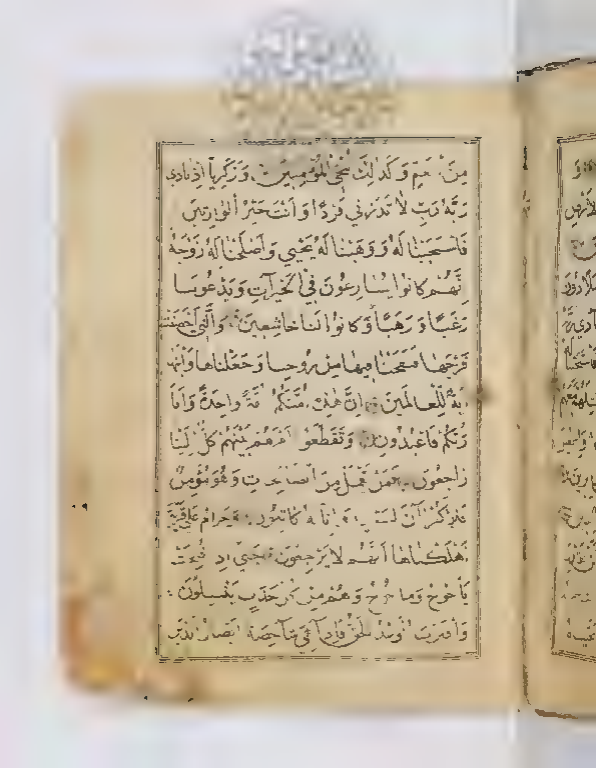 مِنَ الْغَمِّ وَكَذَٰلِكَ نُنْجِي الْمُؤْمِنِينَ وَزَكَرِيَّا إِذْ نَادَىٰ
رَبَّهُ رَبِّ لَا تَذَرْنِي فَرْدًا وَأَنْتَ خَيْرُ الْوَارِثِينَ
فَاسْتَجَبْنَا لَهُ وَوَهَبْنَا لَهُ يَحْيَىٰ وَأَصْلَحْنَا لَهُ زَوْجَهُ
إِنَّهُمْ كَانُوا يُسَارِعُونَ فِي الْخَيْرَاتِ وَيَدْعُونَنَا
رَغَبًا وَرَهَبًا وَكَانُوا لَنَا خَاشِعِينَ وَالَّتِي أَحْصَنَتْ
فَرْجَهَا فَنَفَخْنَا فِيهَا مِنْ رُوحِنَا وَجَعَلْنَاهَا وَابْنَهَا
آيَةً لِلْعَالَمِينَ إِنَّ هَٰذِهِ أُمَّتُكُمْ أُمَّةً وَاحِدَةً وَأَنَا
رَبُّكُمْ فَاعْبُدُونِ وَتَقَطَّعُوا أَمْرَهُمْ بَيْنَهُمْ كُلٌّ إِلَيْنَا
رَاجِعُونَ فَمَنْ يَعْمَلْ مِنَ الصَّالِحَاتِ وَهُوَ مُؤْمِنٌ
فَلَا كُفْرَانَ لِسَعْيِهِ وَإِنَّا لَهُ كَاتِبُونَ وَحَرَامٌ عَلَىٰ قَرْيَةٍ
أَهْلَكْنَاهَا أَنَّهُمْ لَا يَرْجِعُونَ حَتَّىٰ إِذَا فُتِحَتْ
يَأْجُوجُ وَمَأْجُوجُ وَهُمْ مِنْ كُلِّ حَدَبٍ يَنْسِلُونَ
وَاقْتَرَبَ الْوَعْدُ الْحَقُّ فَإِذَا هِيَ شَاخِصَةٌ أَبْصَارُ الَّذِينَ